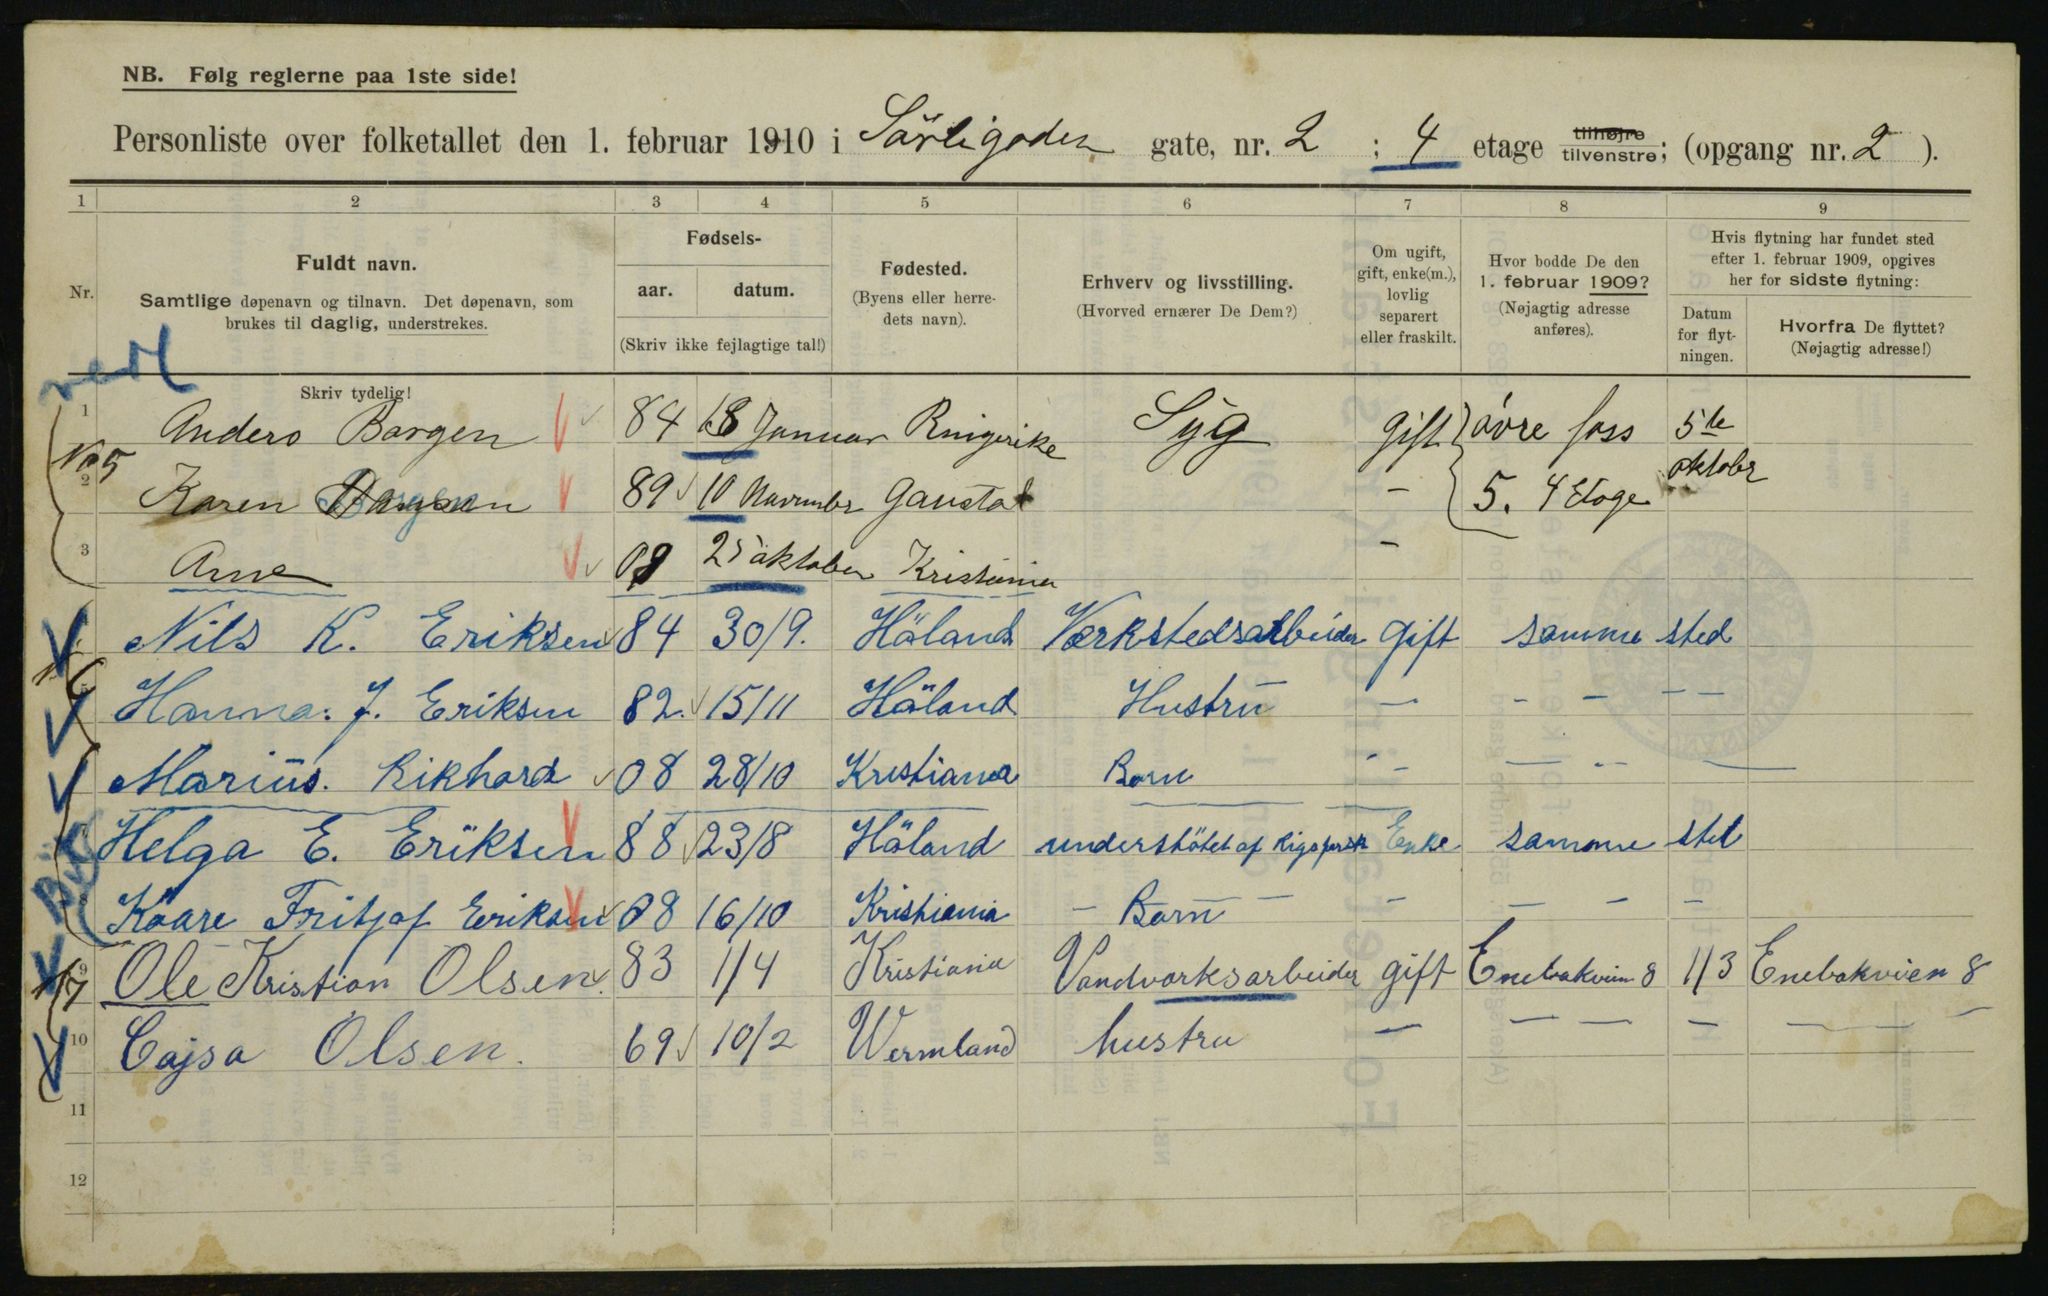 NB. Følg reglerne paa 1ste side!
Personliste over folketallet den 1. februar 1910 i Sörligaden gate, nr. 2 ; 4 etage tilhøjre tilvenstre; (opgang nr. 2 ).
1 2 3 4 5 6 7 8 9
Nr.
Fuldt navn.
Samtlige døpenavn og tilnavn. Det døpenavn, som
brukes til daglig, understrekes.
Fødsels-
aar. datum.
(Skriv ikke fejlagtige tal!)
Fødested.
(Byens eller herre-
dets navn).
Erhverv og livsstilling.
(Hvorved ernærer De Dem?)
Om ugift,
gift, enke(m.),
lovlig
separert
eller fraskilt.
Hvor bodde De den
1. februar 1909?
(Nøjagtig adresse
anføres).
Hvis flytning har fundet sted
efter 1. februar 1909, opgives
her for sidste flytning:
Datum
for flyt-
ningen.
Hvorfra De flyttet?
(Nøjagtig adresse!)
Skriv tydelig!
1 Anders Borgen 84 18 Januar Ringerike Syg gift övre foss 5te
No 5
2 Karen Borgen 89 10 November Gausta - 5. 4 Etage oktober
3 Arne 08 25 oktober Kristiania -
Nils K. Eriksen 84 30/9. Höland Værkstedsarbeider gift samme sted
5 Hanna. J. Eriksen 82. 15/11 Höland Hustru - - - - -
Marius. Rikhard 08 28/10 Kristiania Barn - - - - -
Helga E. Eriksen 88 23/8 Höland understötet af Enke samme sted
Kaare Fritjof Eriksen 08 16/10 Kristiania - Barn - - - - -
9 Ole Kristian Olsen. 83 1/4 Kristiania Vandværksarbeider gift Enebakveien 8 1/3 Enebakveien 8
10 Cajsa Olsen. 69 10/2 Wermland hustru - - - - - -
11
12